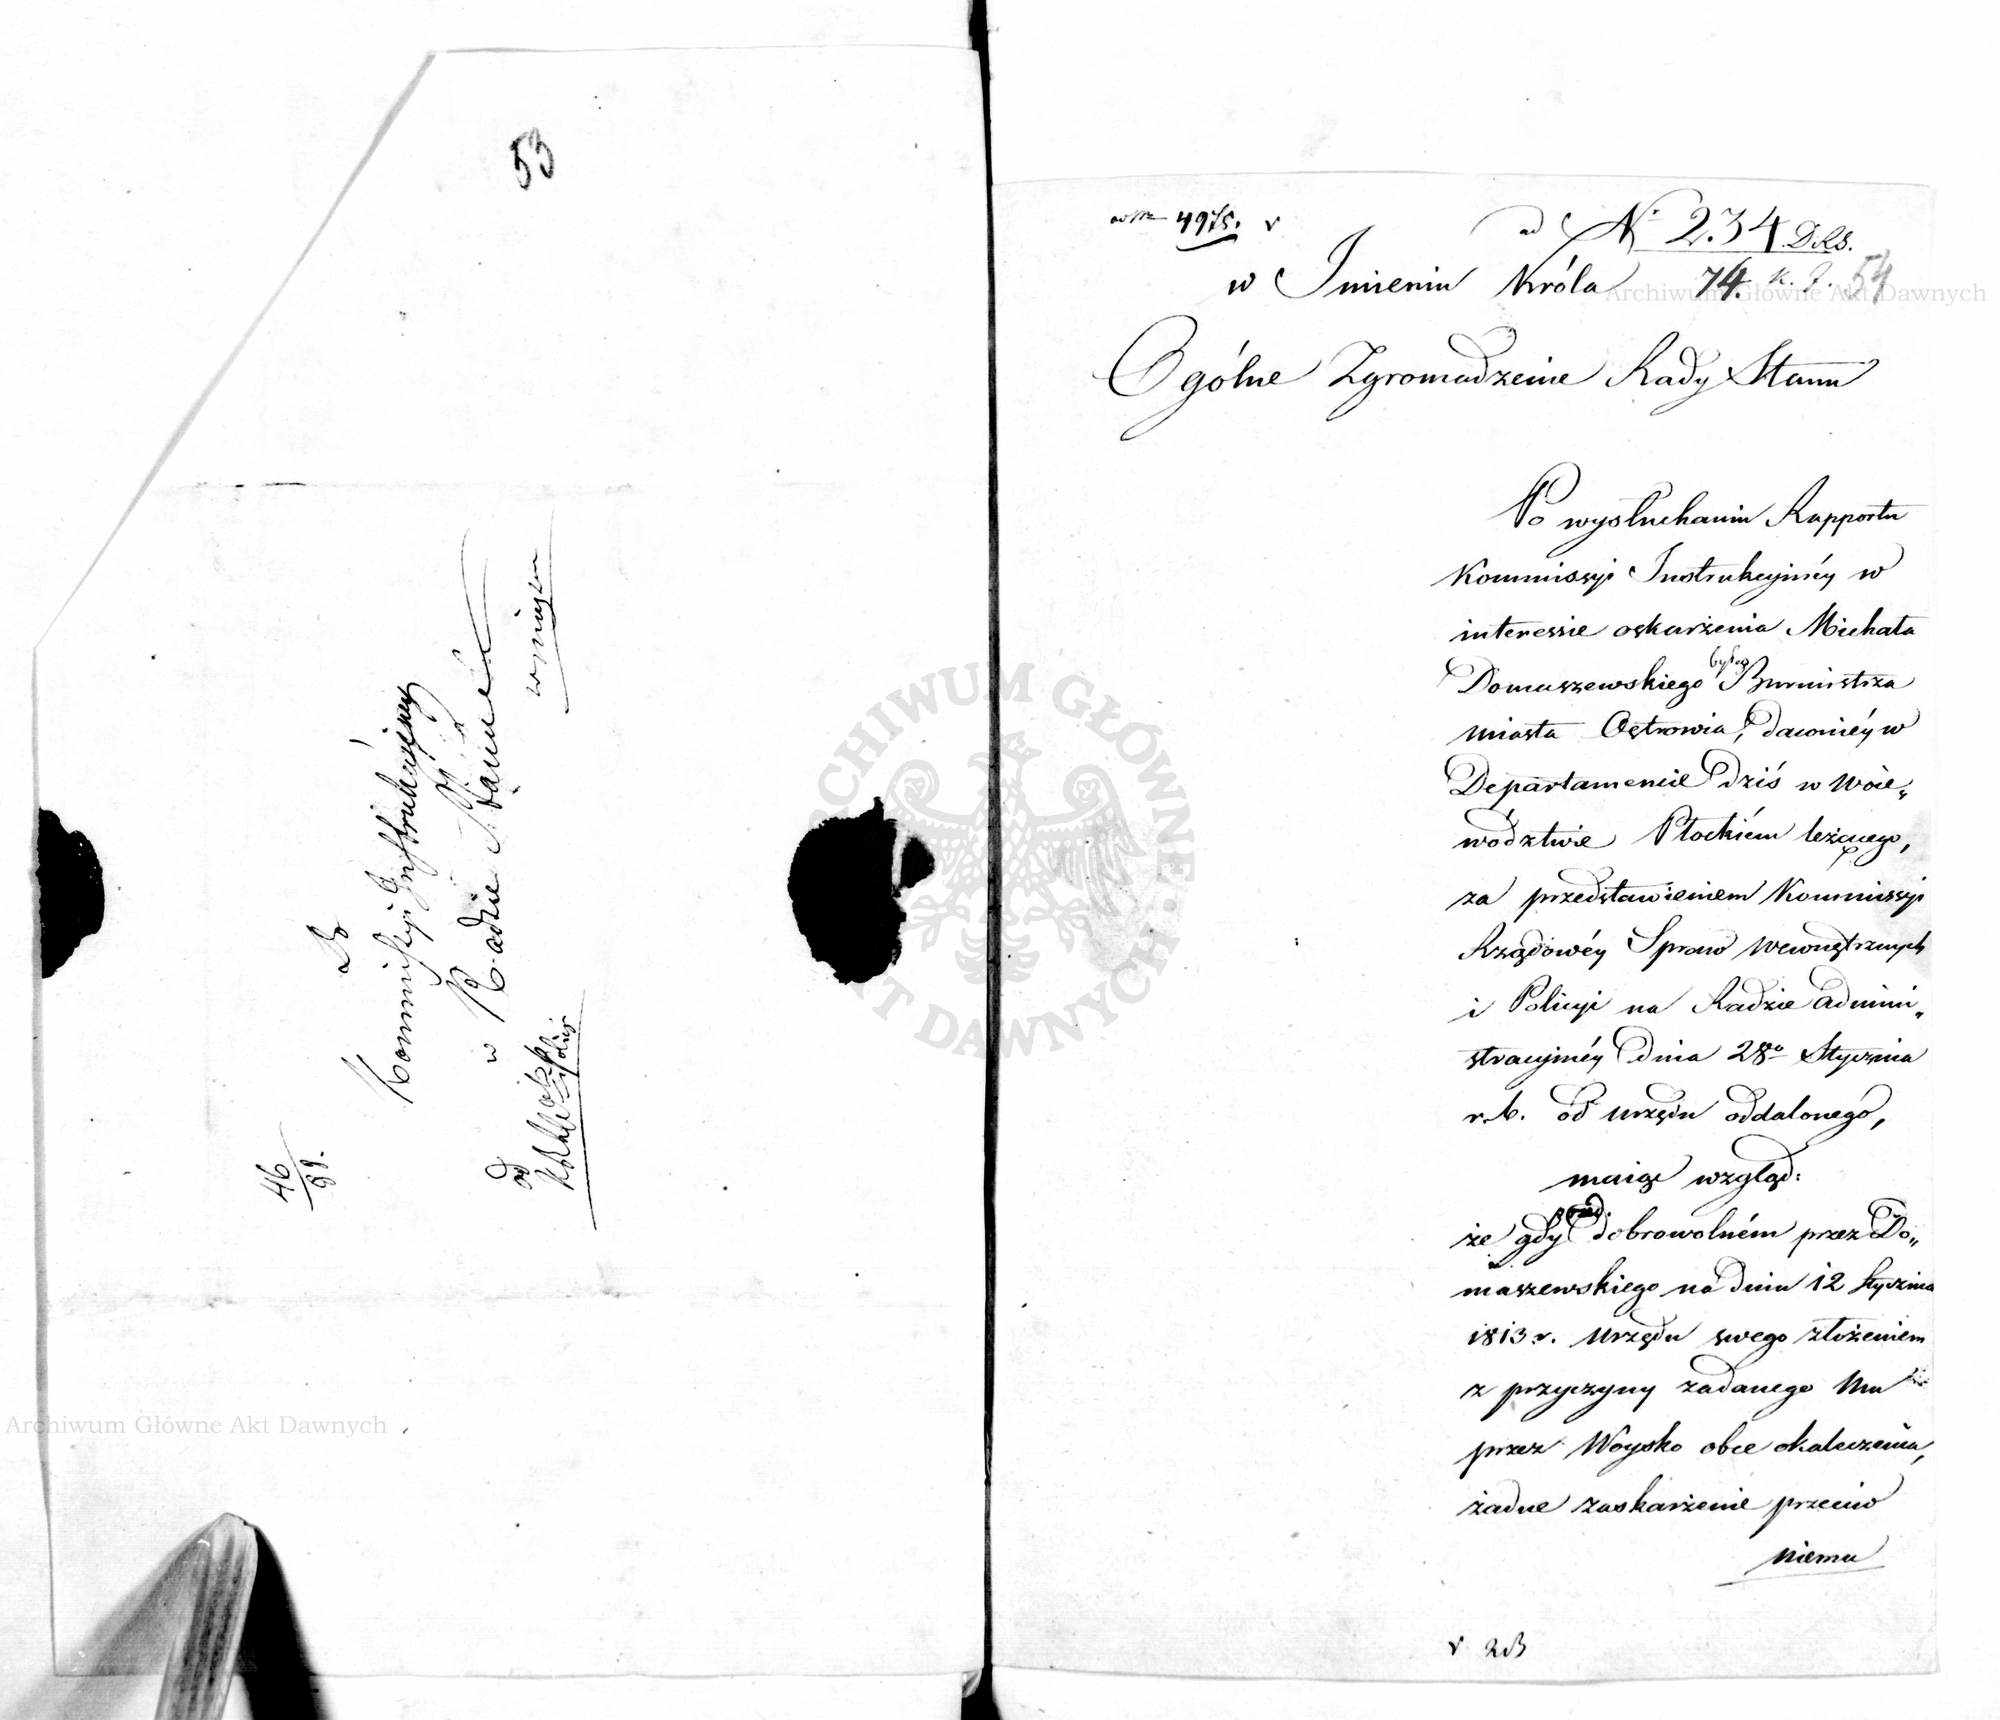 53
46
Do
Kommissyi Instrukcyiney
w Radzie Stanu
od
w mieyscu
4975.
ad Nr 234 D.R.S.
74. K. I. 54
w Imieniu Króla
Ogólne Zgromadzenie Rady Stanu
Po wysłuchaniu Rapportu
Kommissyi Instrukcyinéy w
interessie oskarżenia Michała
byłego
Domaszewskiego Burmistrza
miasta Ostrowia, dawniéy w
Departamencie dziś w Woie„
wodztwie Płockiém leżącego,
za przedstawieniem Kommissyi
Rządowéy Spraw Wewnętrznych
i Policyi na Radzie admini„
stracyinéy dnia 28o Stycznia
r. b. od urzędu oddalonego,
maiąc wzgląd:
że gdy dobrowolném przez Do„
maszewskiego na dniu 12 Stycznia
1813 r. urzędu swego złożeniem
z przyczyny zadanego mu
przez Woysko obce okaleczenia,
żadne zaskarżenie przeciw
niemu
Archiwum Główne Akt Dawnych
Archiwum Główne Akt Dawnych
ARCHIWUM GŁÓWNE AKT DAWNYCH